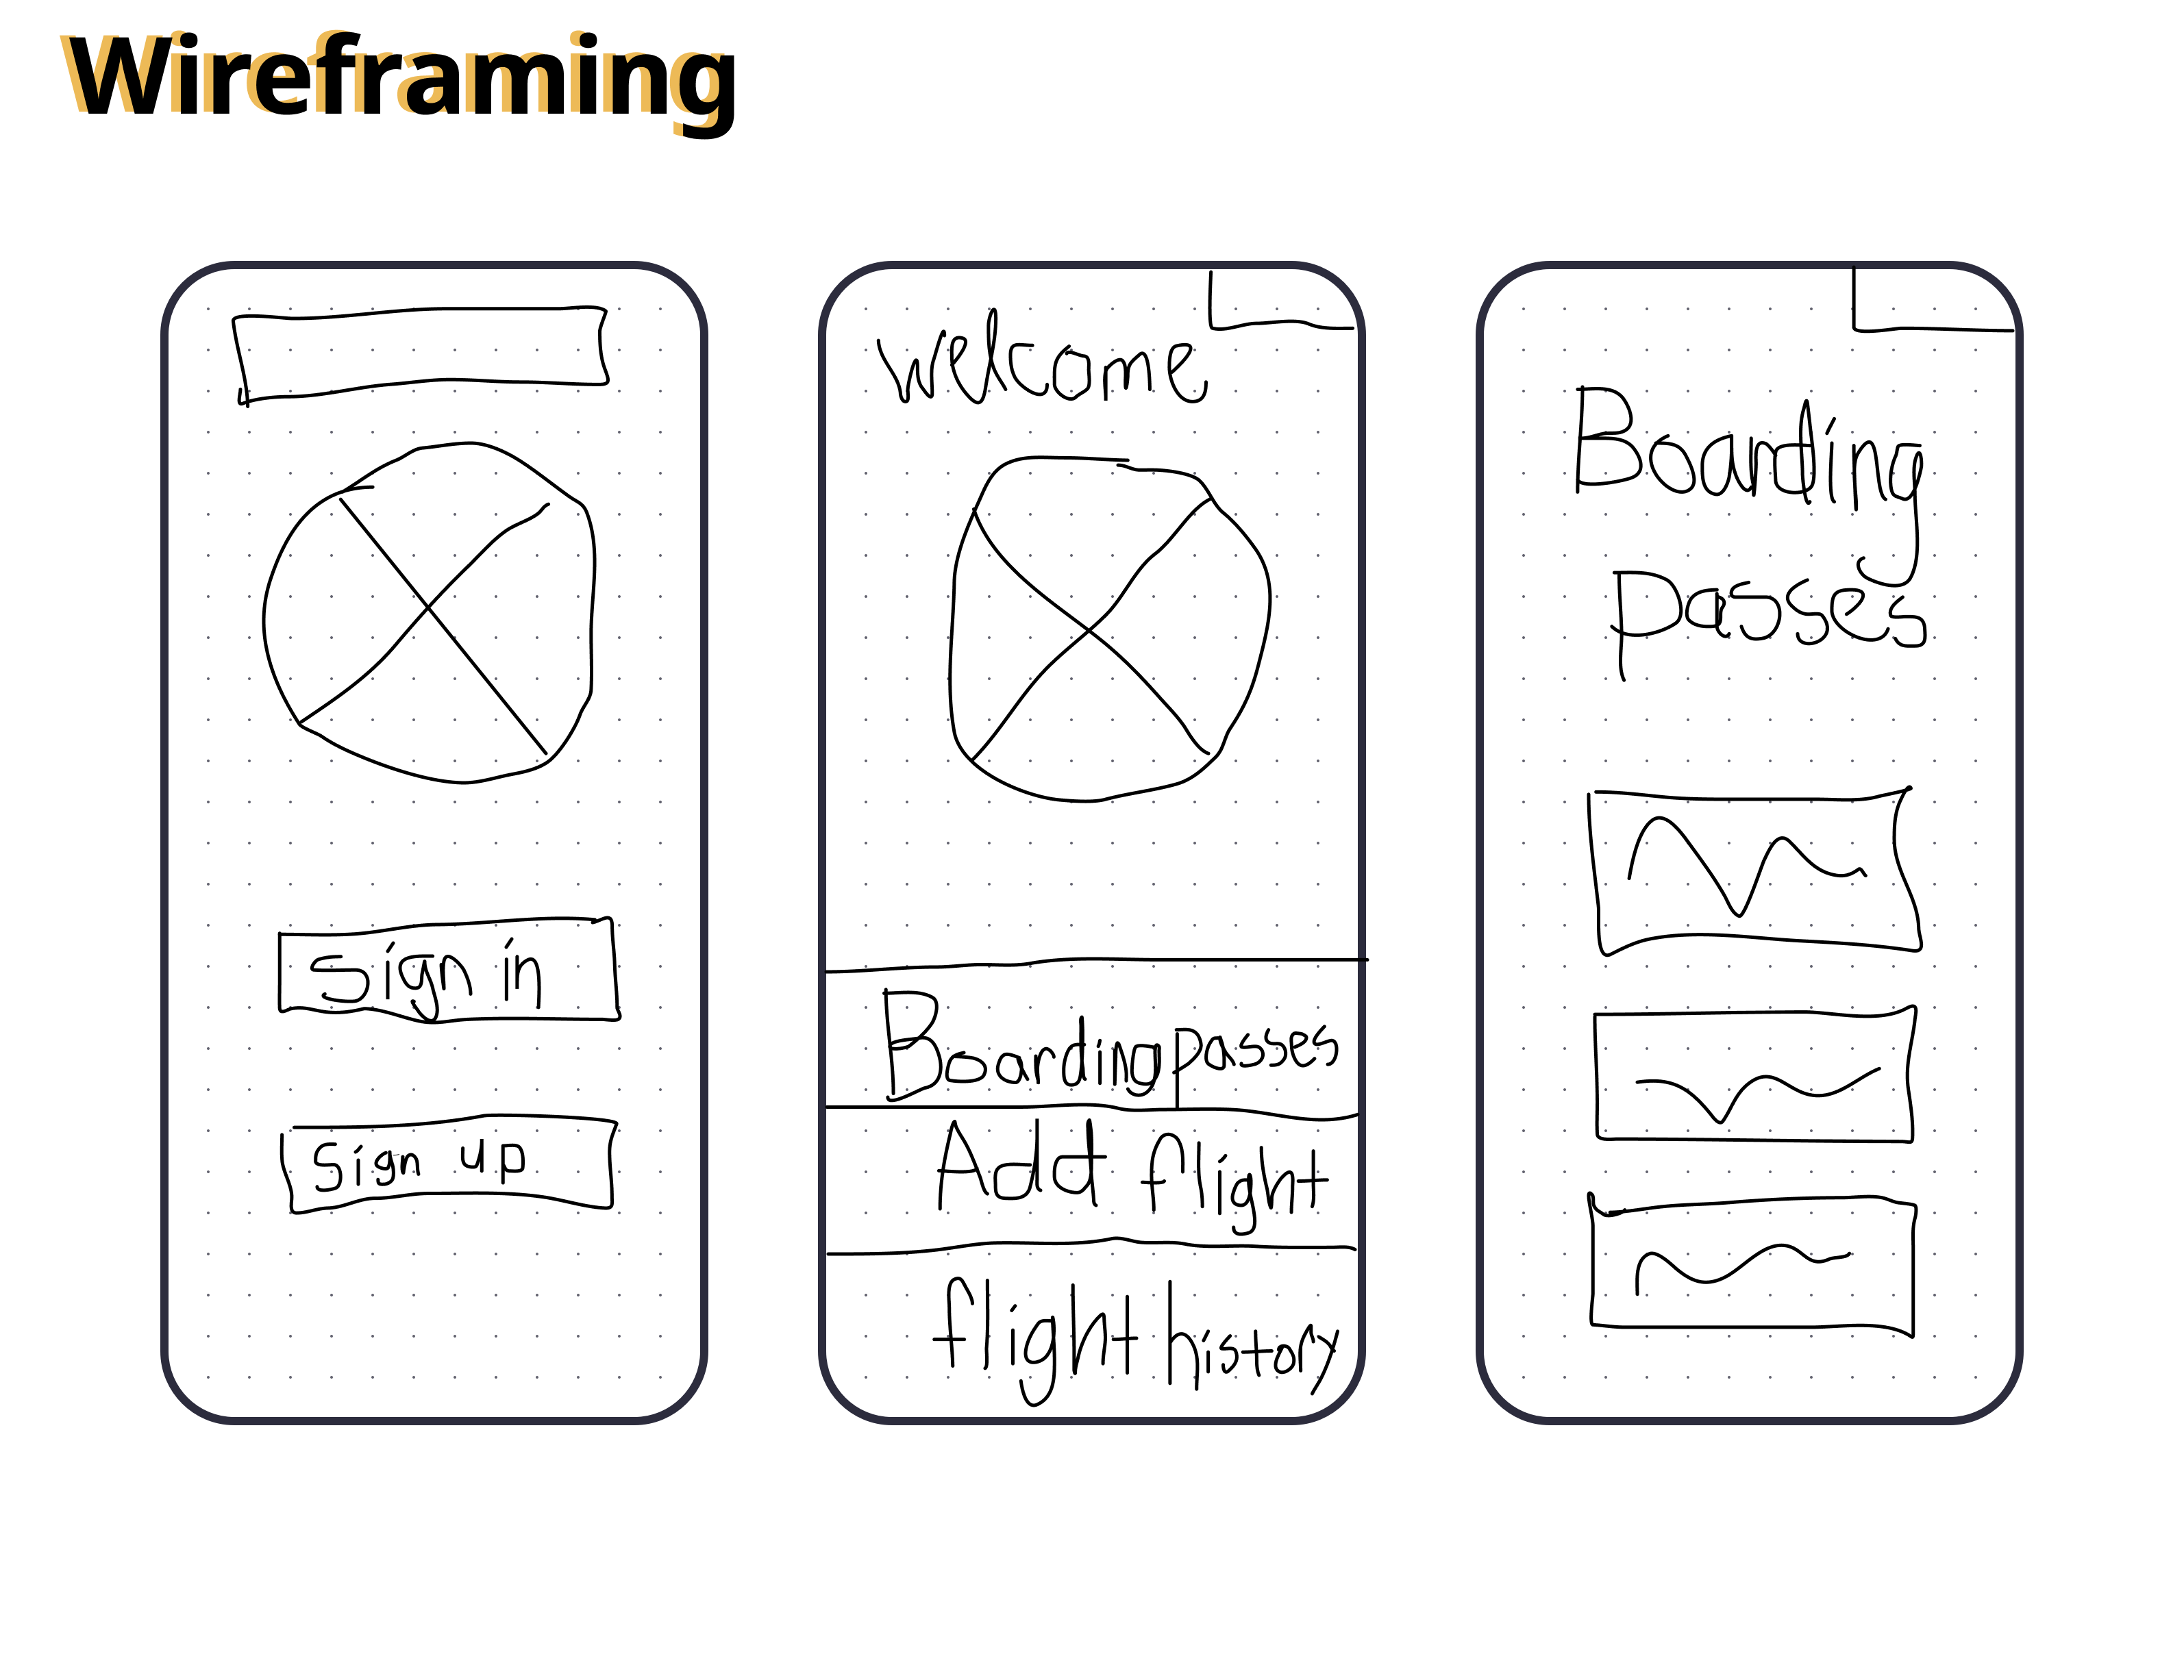 Wireframing
Sign in
Sign up
Welcome
Boarding passes
Add flight
flight history
Boarding
passes